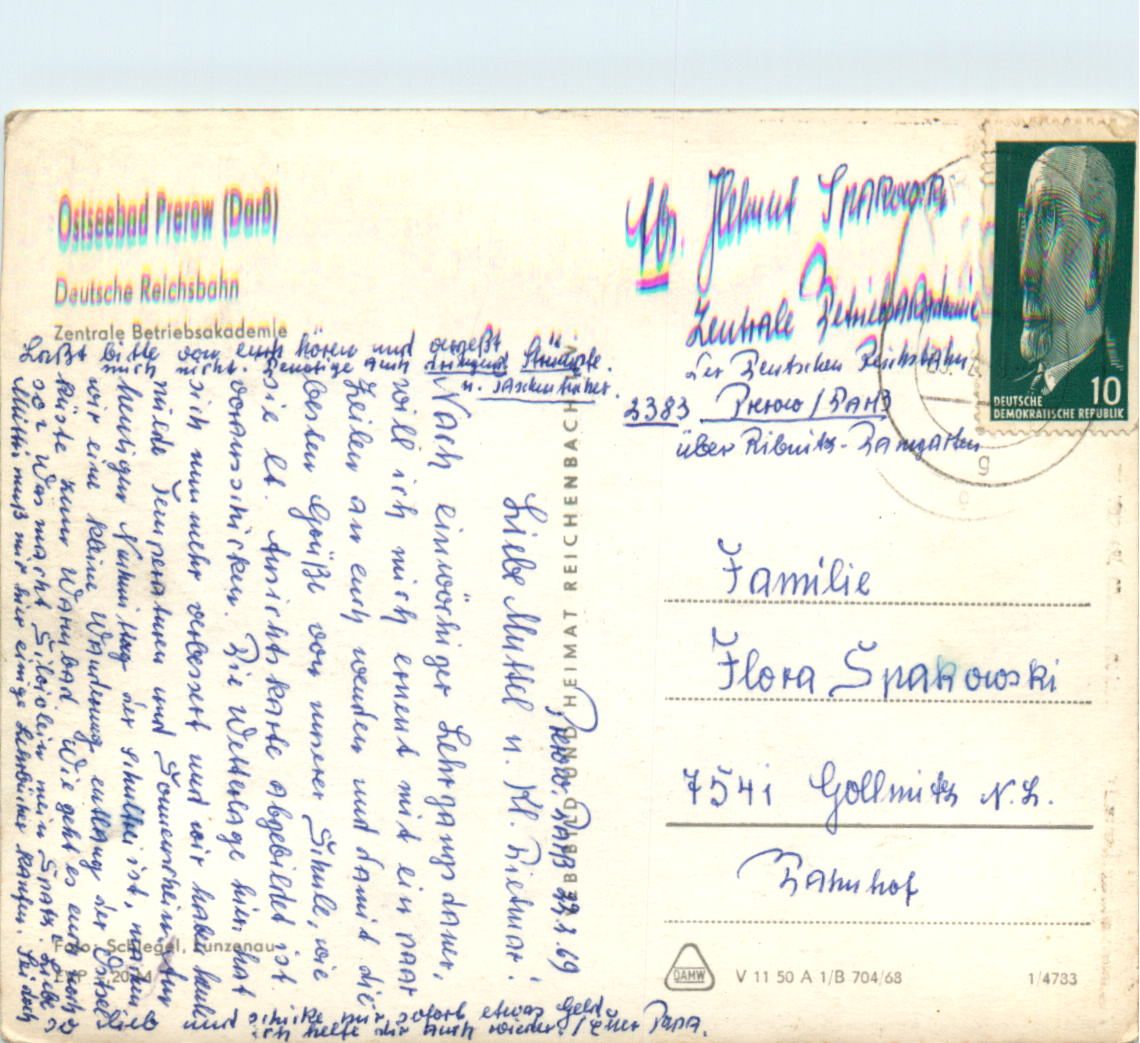 Ostseebad Prerow (Darß)
Deutsche Reichsbahn
Zentrale Betriebsakademie
Abs. Helmut Spakowski
Zentrale Betriebsakademie
der Deutschen Reichsbahn
2383 Prerow / Darß
über Ribnitz-Damgarten
DEUTSCHE
DEMOKRATISCHE REPUBLIK
10
Familie
Flora Spakowski
7541 Gollmitz N.L.
Bahnhof
Prerow, Darß 22.2.69
Liebe Muttel u. Kl. Dietmar!
Nach einwöchiger Lehrgangsdauer,
will ich mich erneut mit ein paar
Zeilen an euch wenden und damit die
besten Grüße von unserer Schule, wie
sie lt. Ansichtskarte abgebildet ist
vorausschicken. Die Wetterlage hier hat
sich nunmehr verbessert und wir haben heute
milde Temperaturen und Sonnenschein. Am
heutigen Nachmittag der schulfrei ist, machen
wir eine kleine Wanderung entlang der Ostsee
küste zum Warmbad. Wie geht es euch noch
so? Was macht Silvielein mein Spatz. Liebe
Mutti muß mir hier einige Lehrbücher kaufen. Sei doch
so lieb und schicke mir sofort etwas Geld
ich helfe dir auch wieder! Euer Papa.
Laßt bitte von euch hören und vergeßt
mich nicht. Benötige auch dringend Strümpfe
u. Taschentücher.
VEB BILD UND HEIMAT REICHENBACH i. V.
Foto: Schlegel, Lunzenau
EVP 0,20 M
DAMW
V 11 50 A 1/B 704/68
1/4733